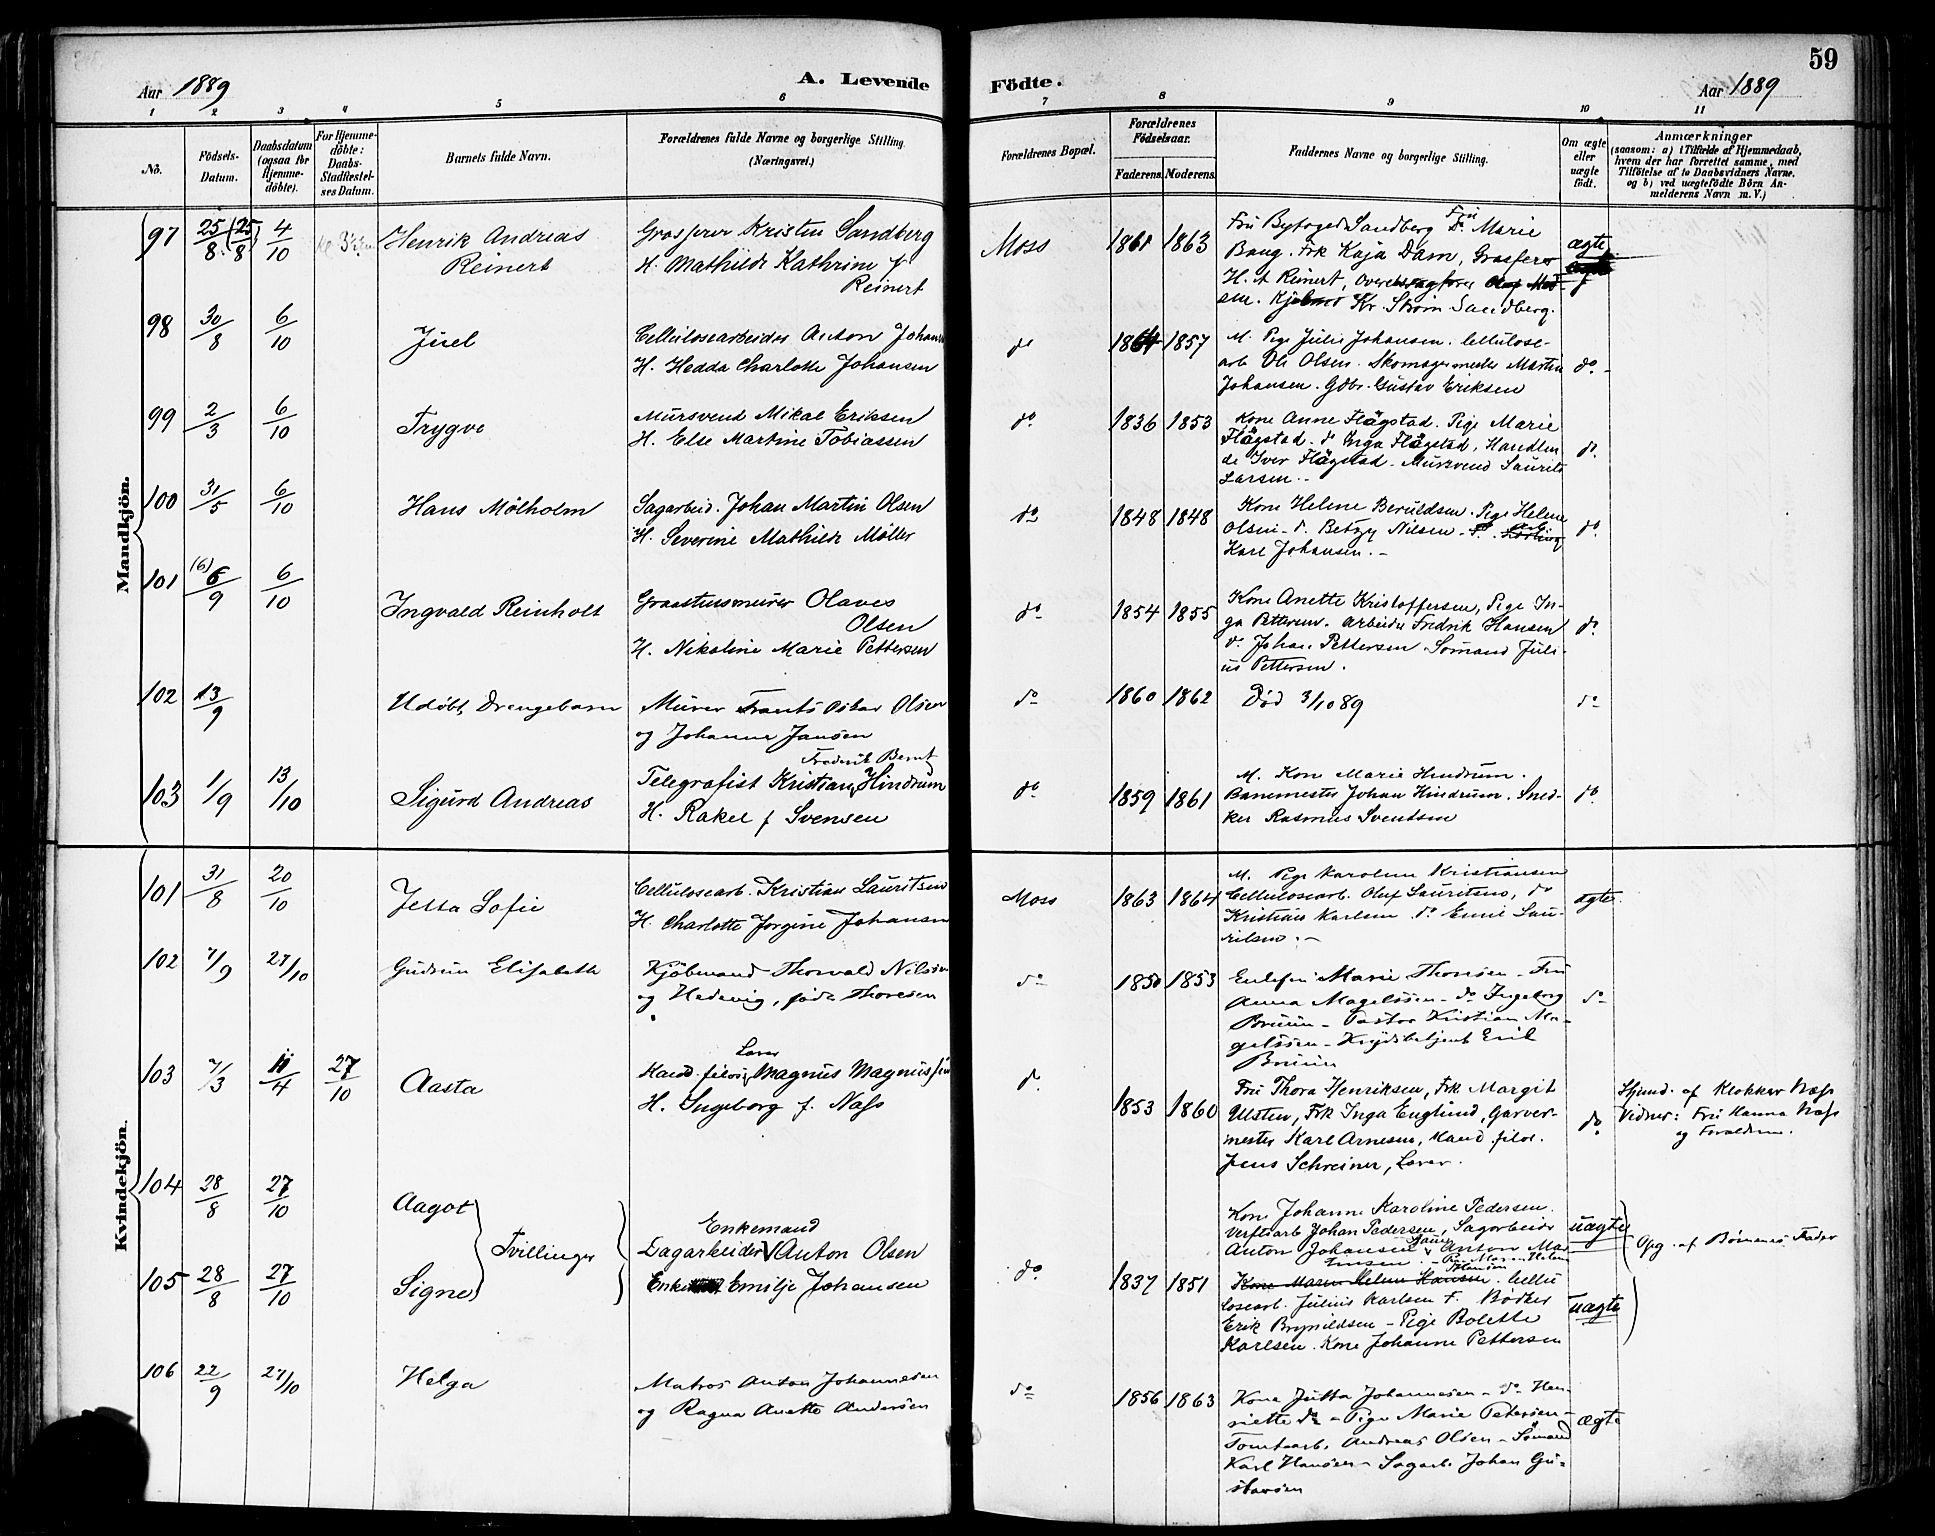 59
Aar 1889
A. Levende Födte.
Aar 1889
1 2 3 4 5 6 7 8 9 10 11
No.
Födsels-Datum.
Daabsdatum (ogsaa for Hjemme-döbte).
For Hjemme-döbte: Daabs-Stadfæstel-ses Datum.
Barnets fulde Navn.
Forældrenes fulde Navne og borgerlige Stilling
(Næringsvei.)
Forældrenes Bopæl.
Forældrenes Födselsaar.
Faderens. Moderens.
Faddernes Navne og borgerlige Stilling.
Om ægte eller uægte födt.
Anmærkninger
(saasom: a) i Tilfælde af Hjemmedaab,
hvem der har forrettet samme, med
Tilföielse af to Daabsvidners Navne,
og b) ved uægtefödte Börn An-
melderens Navn m. V.)
Mandkjön.
97 25/8 (25/8) 4/10
Henrik Andreas
Reinert
Grosserer Kristen Sandberg
H. Mathilde Kathrine f
Reinert
Moss 1861 1863
Fru Byfoged Sandberg Fru Marie
Bang. Frk Kaja Dam, Grosserer
H. A Reinert,
Kr. Strøm Sandberg.
ægte
98 30/8 6/10
Juel
Cellulosearbeider Anton Johans
H. Hedda Charlotte Johansen
do 1864 1857
M. Pige Julie Johansen. Cellulose-
arb Ole Olsen. Skomagermester Martin
Johansen. Gdbr. Gustav Eriksen
do.
99 2/3 6/10
Trygve
Mursvend Mikal Eriksen
H. Else Martine Tobiassen
do. 1836 1853
Kone Anne Flågstad. Pige Marie
Flågstad. do Inga Flågstad, Handlen
de Iver Flågstad. Mursvend Laurits
Larsen.
do.
100 31/5 6/10
Hans Mølholm
Sagarbeid. Johan Martin Olsen
H. Severine Mathilde Møller
do 1848 1848
Kone Helene Beruldsen. Pige Helene
Olsen. do. Betzy Nilsen.
Karl Johansen.
do.
101 (6) 6/9 6/10
Ingvald Reinholt
Graastensmurer Olaves
Olsen
H. Nikoline Marie Pettersen
do 1854 1855
Kone Anette Kristoffersen, Pige In-
ga Pettersen. Arbeider Fredrik Hansen
do. Johan Pettersen. Sømand Juli-
us Pettersen.
do.
102 13/9
Udøbt Drengebarn
Murer Frants Oskar Olsen
og Johanne Jansen
do 1860 1862
Død 3/10 89
do
103 1/9 13/10
Sigurd Andreas
Frederik Bernt
Telegrafist Kristian Hindrum
H. Rakel f Svensen
do 1859 1861
M. Kone Marie Hindrum.
Banemester Johan Hindrum. Sned-
ker Rasmus Svendsen
do.
Kvindekjön.
101 31/8 20/10
Jetta Sofie
Cellulosearb. Kristian Lauritsen
H. Charlotte Jorgine Johansen
Moss 1863 1864
M. Pige Karoline Kristiansen
Cellulosearb. Oluf Lauritsen, do
Kristian Karlsen. do Emil Lau-
ritsen.
ægte
102 7/9 27/10
Gudrun Elisabeth
Kjöbmand Thorvald Nilssen
og Hedevig, födt Thoresen
do 1850 1853
Enkefru Marie Thoresen - Fru
Anna Magelssen - do Ingeborg
Bruun - Pastor Kristian Ma-
gelssen - Krydsbetjent Erik
Bruun
do
103 7/3 11/4 27/10
Aasta
Lærer
Kand. filos. Magnus Magnussen
H. Ingeborg f. Næss
do 1853 1860
Fru Thora Henriksen, Frk Margit
Ulsten, Frk Inga Englund, Garver-
mester Karl Arnesen, Kand. filos.
Jens Schreiner, Lærer.
do.
Hjemd. af Klokker Næss
Vidner: Fru Hanna Næss
og Forældrene.
104 28/8 27/10
Aagot
105 28/8 27/10
Signe
Tvillinger
Enkemand
Dagarbeider Anton Olsen
Enke Emilje Johansen
do 1837 1851
Kone Johanne Karoline Pedersen.
Verftsarb Johan Pedersen, Sagarbeider
Anton Johansen Anton Mar-
tinsen. - Pige Maren Helene
Hansen
Kone Maren Helene Hansen. Cellu
losearb. Julius Karlsen F. Bødker
Erik Brynildsen - Pige Bolette
Karlsen. Kone Johanne Pettersen
uægte
uægte
Opg. af Børnenes Fader
106 22/9 27/10
Helga
Matros Anton Johannesen
og Ragna Anette Andersen
do 1856 1863
Kone Jutta Johannesen - do Hen-
riette do - Pige Marie Petersen -
Tomtearb. Andreas Olsen - Sømand
Karl Hansen - Sagarb. Johan Gu-
stavsen
ægte